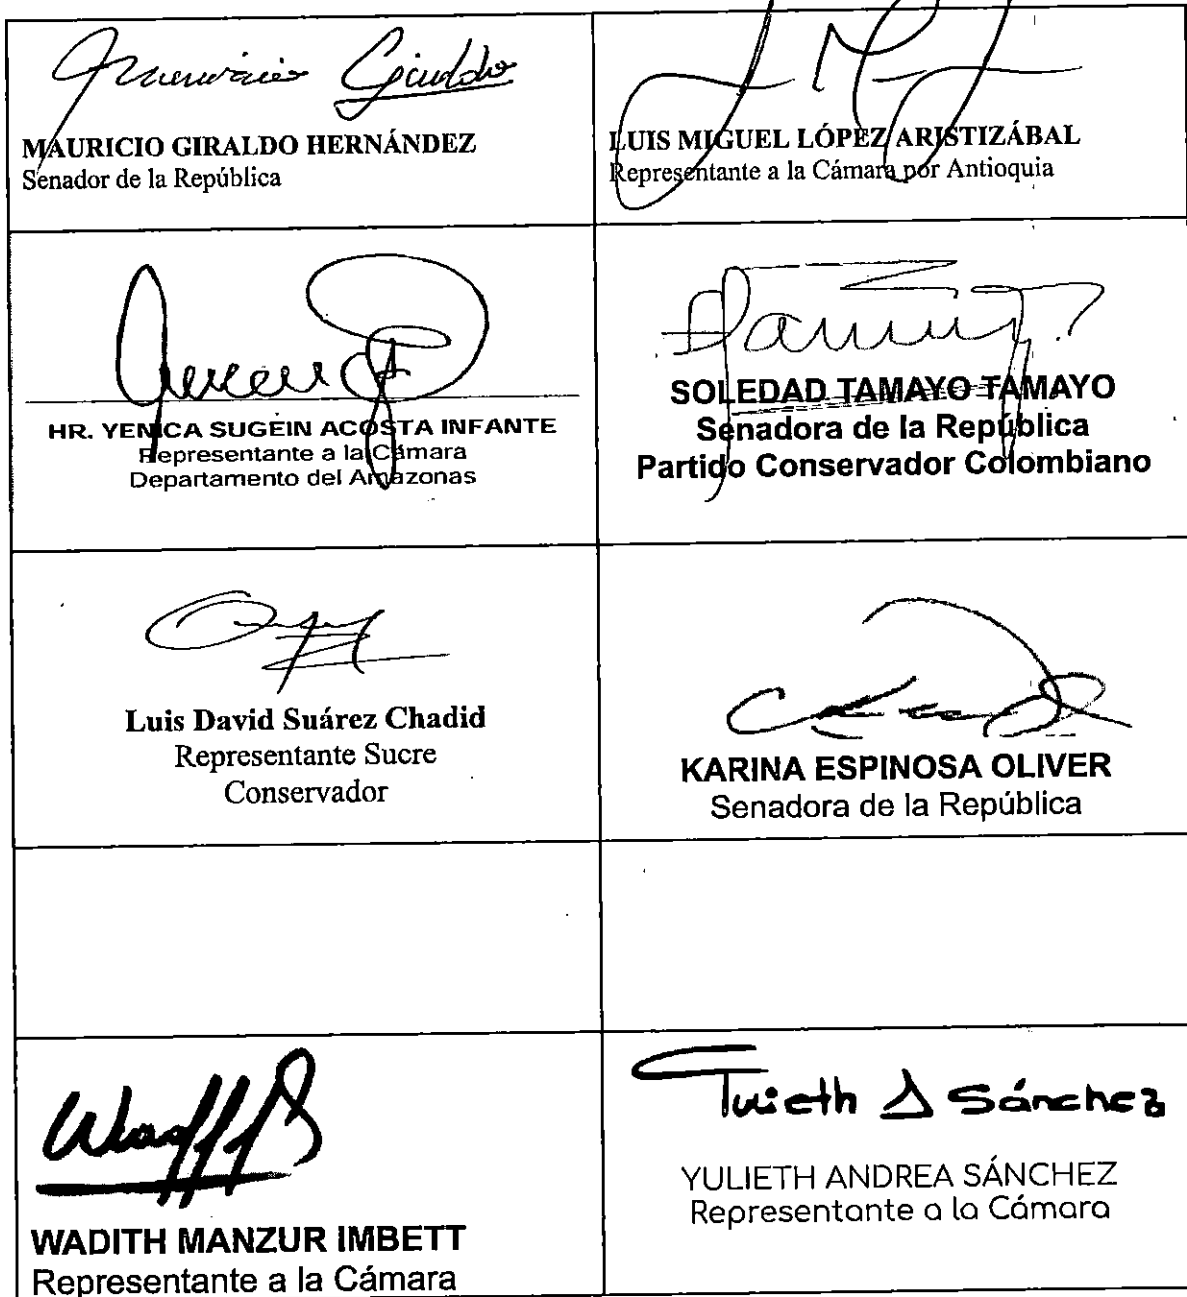 Mauricio Giraldo
MAURICIO GIRALDO HERNÁNDEZ
Senador de la República
LUIS MIGUEL LÓPEZ ARISTIZÁBAL
Representante a la Cámara por Antioquia
HR. YENICA SUGEIN ACOSTA INFANTE
Representante a la Cámara
Departamento del Amazonas
SOLEDAD TAMAYO TAMAYO
Senadora de la República
Partido Conservador Colombiano
Luis David Suárez Chadid
Representante Sucre
Conservador
KARINA ESPINOSA OLIVER
Senadora de la República
WADITH MANZUR IMBETT
Representante a la Cámara
Yulieth A Sánchez
YULIETH ANDREA SÁNCHEZ
Representante a la Cámara